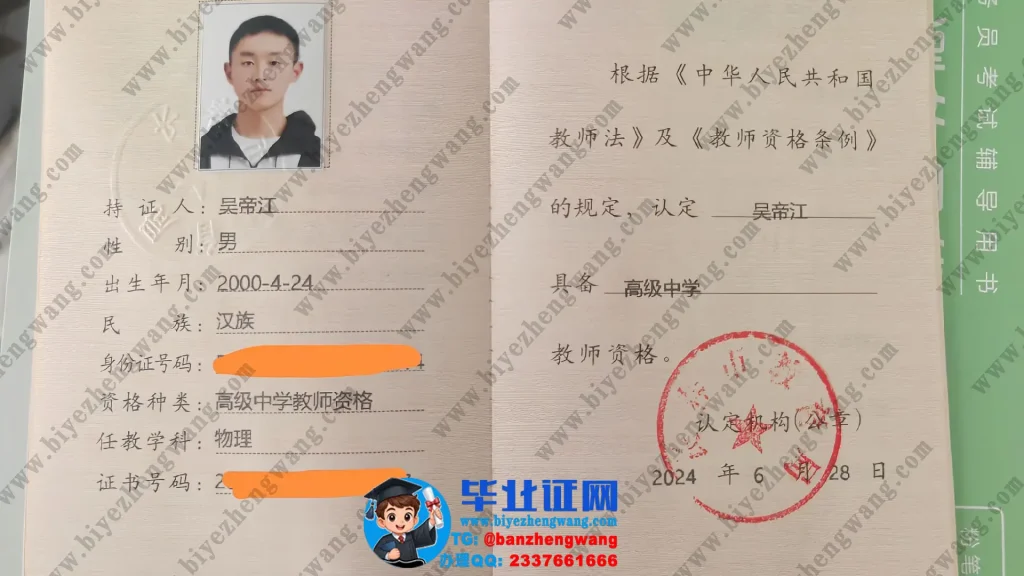 持 证 人：吴帝江
性 别：男
出生年月：2000-4-24
民 族：汉族
身份证号码：
资格种类：高级中学教师资格
任教学科：物理
证书号码：2
根据《中华人民共和国
教师法》及《教师资格条例》
的规定，认定 吴帝江
具备 高级中学
教师资格。
认定机构(公章)
2024 年 6 月 28 日
员考试辅导用书
粉笔
毕业证网
www.biyezhengwang.com
TG: @banzhengwang
办理QQ: 2337661666
www.biyezhengwang.com